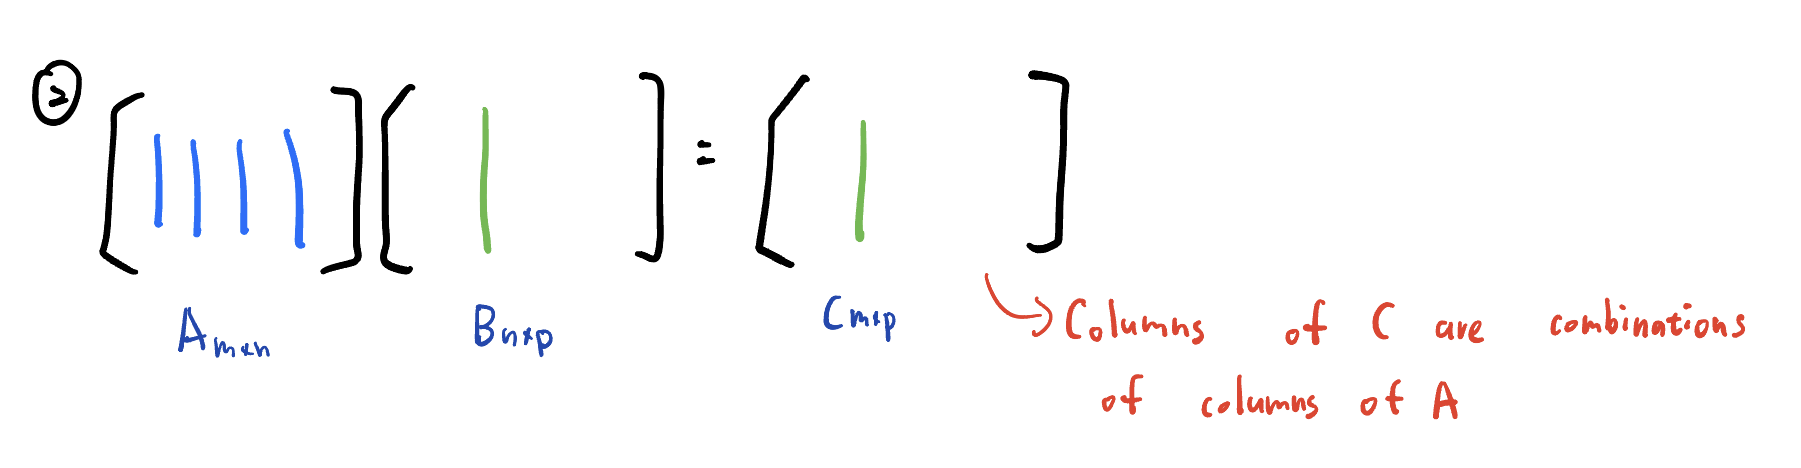 ②
[ ] [ ] = [ ]
Aₘₓₙ Bₙₓₚ Cₘₓₚ
Columns of C are combinations
of columns of A